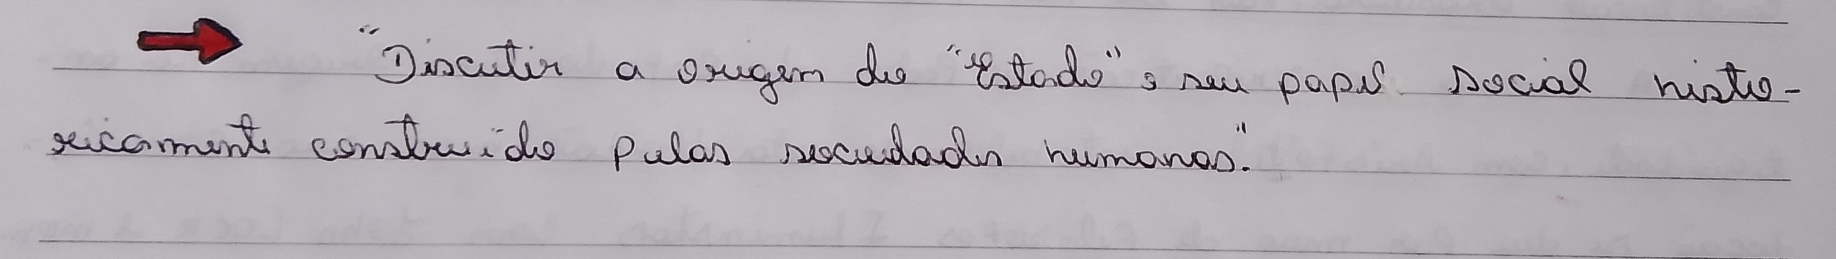 "Discutir a origem do "Estado" e seu papel social histo-
ricamente construido pelas sociedades humanas."